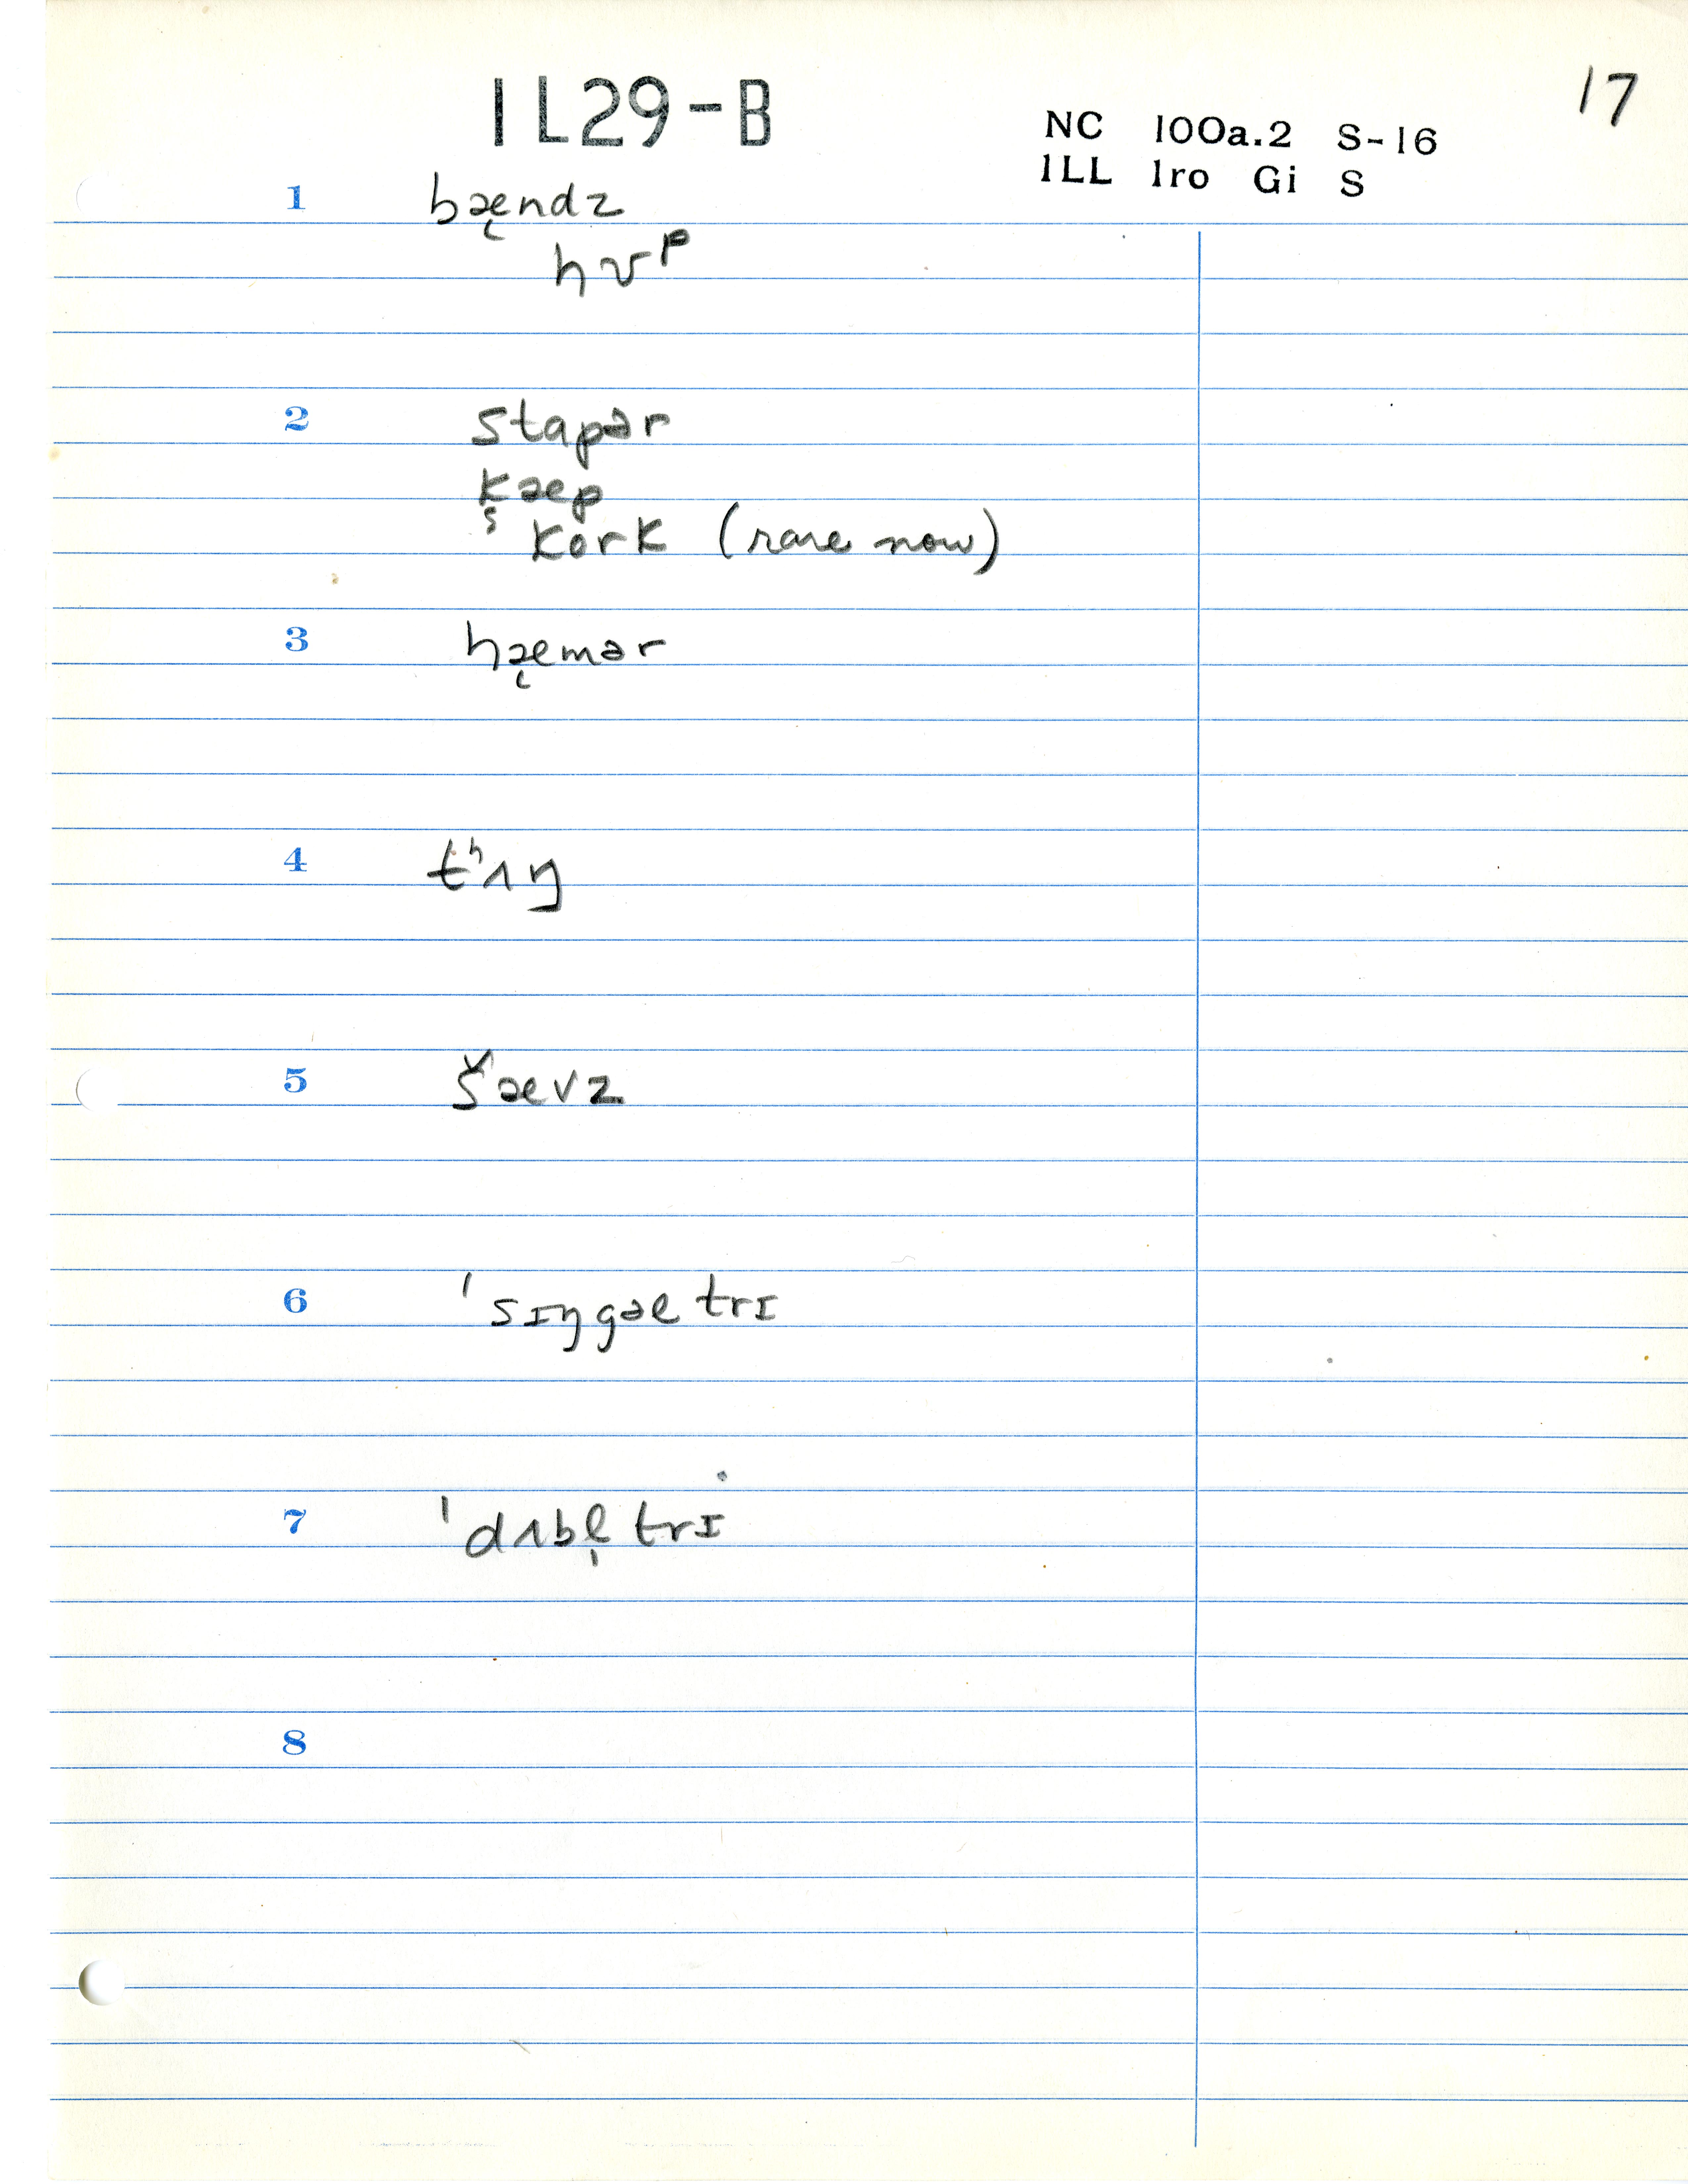 IL29-B
17
NC 100a.2 S-16
ILL Iro Gi S
1 bæ̨ndz
hʊp
2 stapər
kæp
s kork (rare now)
3 hæ̨mər
4 tʰʌŋ
5 šævz
6 ˈsɪŋgəl trɪ
7 ˈdʌbl̩ trɪ
8